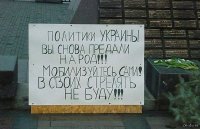 ПОЛИТИКИ УКРАИНЫ
ВЫ СНОВА ПРЕДАЛИ
НАРОД!!!
МОБИЛИЗУЙТЕСЬ САМИ!
В СВОИХ СТРЕЛЯТЬ
НЕ БУДУ!!!